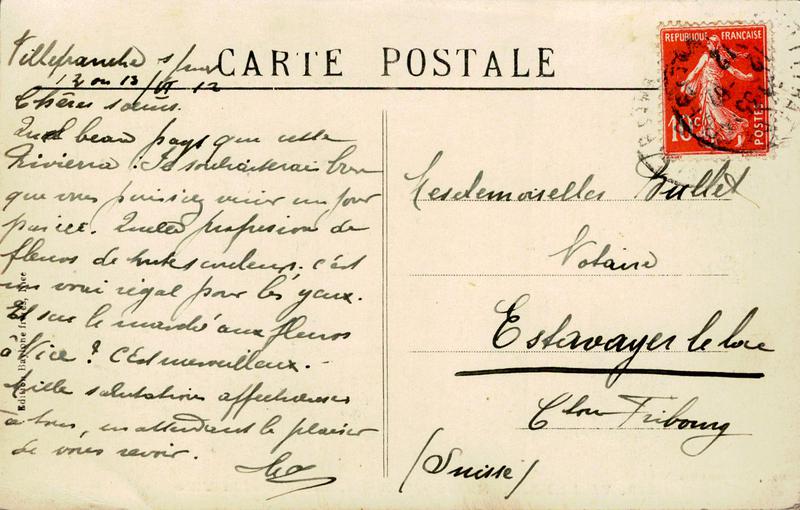 CARTE POSTALE
REPUBLIQUE FRANÇAISE
10 c
POSTES
Villefranche s/mer
12 ou 13/VI 12
Chères sœurs.
Quel beau pays que cette
Rivierra. Je souhaiterais bien
que vous puissiez venir un jour
par ici. Quelle profusion de
fleurs de toutes couleurs. c'est
un vrai régal pour les yeux.
Et sur le marché aux fleurs
à Nice ? C'est merveilleux. -
Mille salutations affectueuses
à tous, en attendant le plaisir
de vous revoir.
Mesdemoiselles Bullet
Notaire
Estavayer le lac
Cton Fribourg
(Suisse)